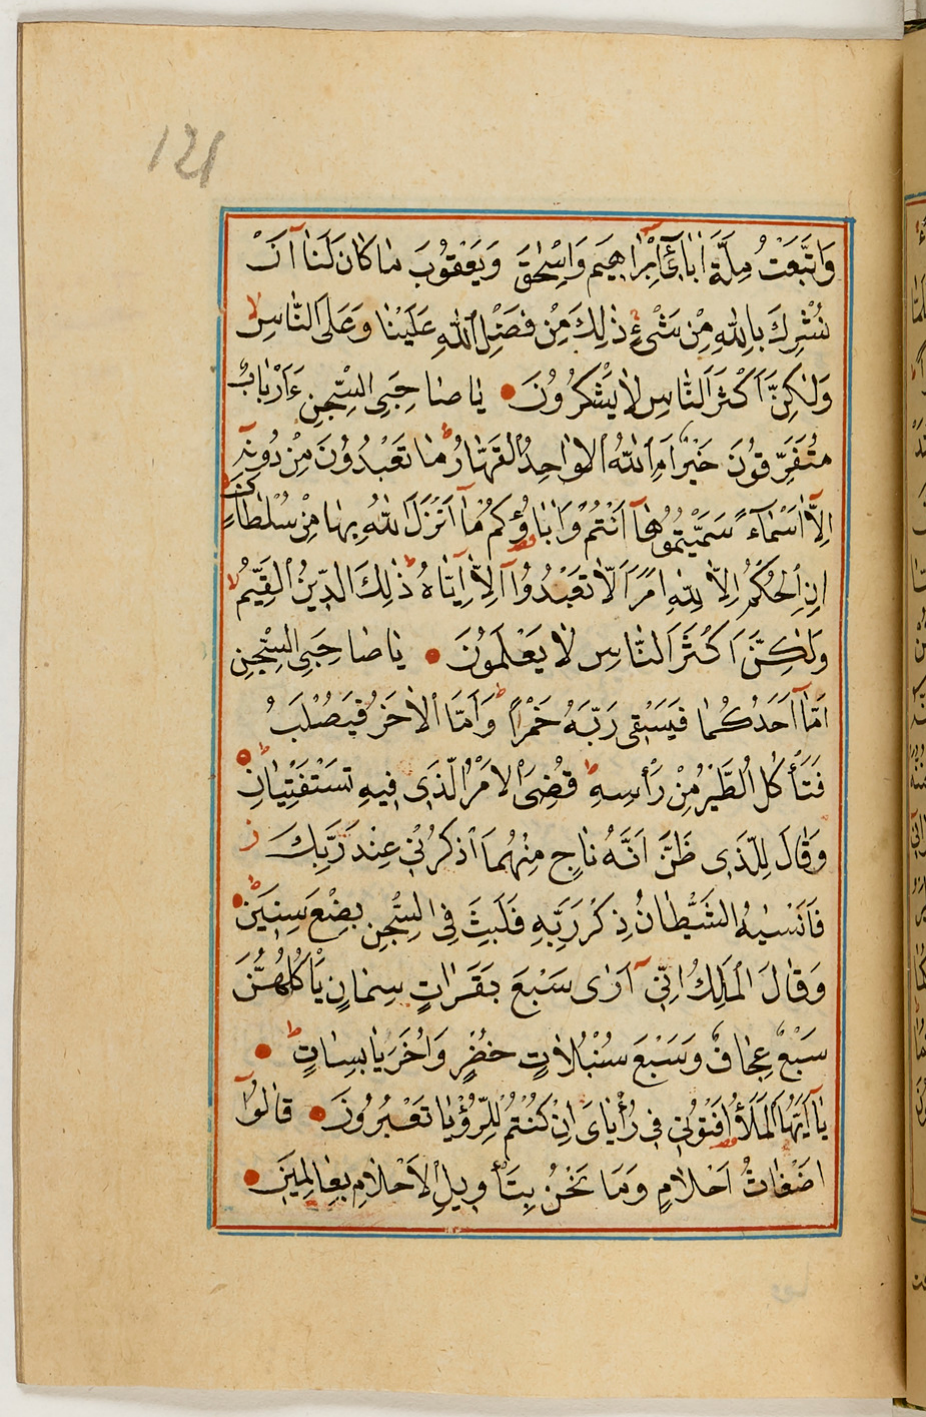 121
وَاتَّبَعْتُ مِلَّةَ اٰبَاۤءِٓى اِبْرٰاهِيمَ وَاِسْحٰقَ وَيَعْقُوبَ مٰا كَانَ لَنٰاۤ اَنْ
نُشْرِكَ بِاللهِ مِنْ شَىْءٍ ط ذٰلِكَ مِنْ فَضْلِ اللهِ عَلَيْنٰا وَعَلَى النّٰاسِ لا
وَلٰكِنَّ اَكْثَرَ النّٰاسِ لٰا يَشْكُرُونَ يٰا صٰاحِبَىِ السِّجْنِ ءَاَرْبٰابٌ
مُتَفَرِّقُونَ خَيْرٌ اَمِ اللهُ الْوٰاحِدُ الْقَهّٰارُ ط مٰا تَعْبُدُونَ مِنْ دُونِهِۤ
اِلَّاۤ اَسْمٰاۤءً سَمَّيْتُمُوهٰاۤ اَنْتُمْ وَاٰبٰاۤؤُكُمْ مٰاۤ اَنْزَلَ اللهُ بِهٰا مِنْ سُلْطٰانٍ ط
اِنِ الْحُكْمُ اِلَّا لِلّٰهِ اَمَرَ اَلَّا تَعْبُدُوۤا اِلَّاۤ اِيّٰاهُ ط ذٰلِكَ الدِّينُ الْقَيِّمُ لا
وَلٰكِنَّ اَكْثَرَ النّٰاسِ لٰا يَعْلَمُونَ يٰا صٰاحِبَىِ السِّجْنِ
اَمّٰاۤ اَحَدُكُمٰا فَيَسْقِى رَبَّهُ خَمْرًا ط وَاَمَّا الْاٰخَرُ فَيُصْلَبُ
فَتَأْكُلُ الطَّيْرُ مِنْ رَأْسِهِ ط قُضِىَ الْاَمْرُ الَّذِى فِيهِ تَسْتَفْتِيٰانِ ط
وَقٰالَ لِلَّذِى ظَنَّ اَنَّهُ نٰاجٍ مِنْهُمَا اذْكُرْنِى عِنْدَ رَبِّكَ ز
فَاَنْسٰيهُ الشَّيْطٰانُ ذِكْرَ رَبِّهِ فَلَبِثَ فِى السِّجْنِ بِضْعَ سِنِينَ ط
وَقٰالَ الْمَلِكُ اِنِّىۤ اَرٰى سَبْعَ بَقَرٰاتٍ سِمٰانٍ يَأْكُلُهُنَّ
سَبْعٌ عِجٰافٌ وَسَبْعَ سُنْبُلٰاتٍ خُضْرٍ وَاُخَرَ يٰابِسٰاتٍ ط
يٰاۤ اَيُّهَا الْمَلَأُ اَفْتُونِى فِى رُءْيٰاىَ اِنْ كُنْتُمْ لِلرُّؤْيٰا تَعْبُرُونَ قٰالُوۤا
اَضْغٰاثُ اَحْلٰامٍ وَمَا نَحْنُ بِتَأْوِيلِ الْاَحْلٰامِ بِعٰالِمِينَ